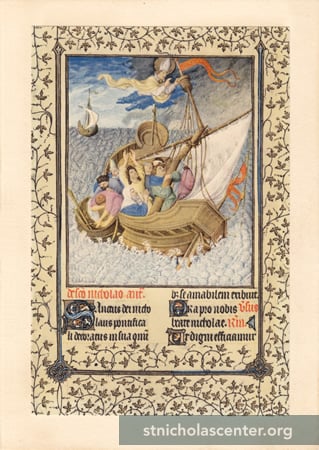 de sco nicholao ant.
Sanctus dei nicho
laus pontifica
li decoratus infula
b; se amabilem exhibuit
Ora pro nobis vsus
beate nicholae. Rm
Vt digni efficiamur
stnicholascenter.org